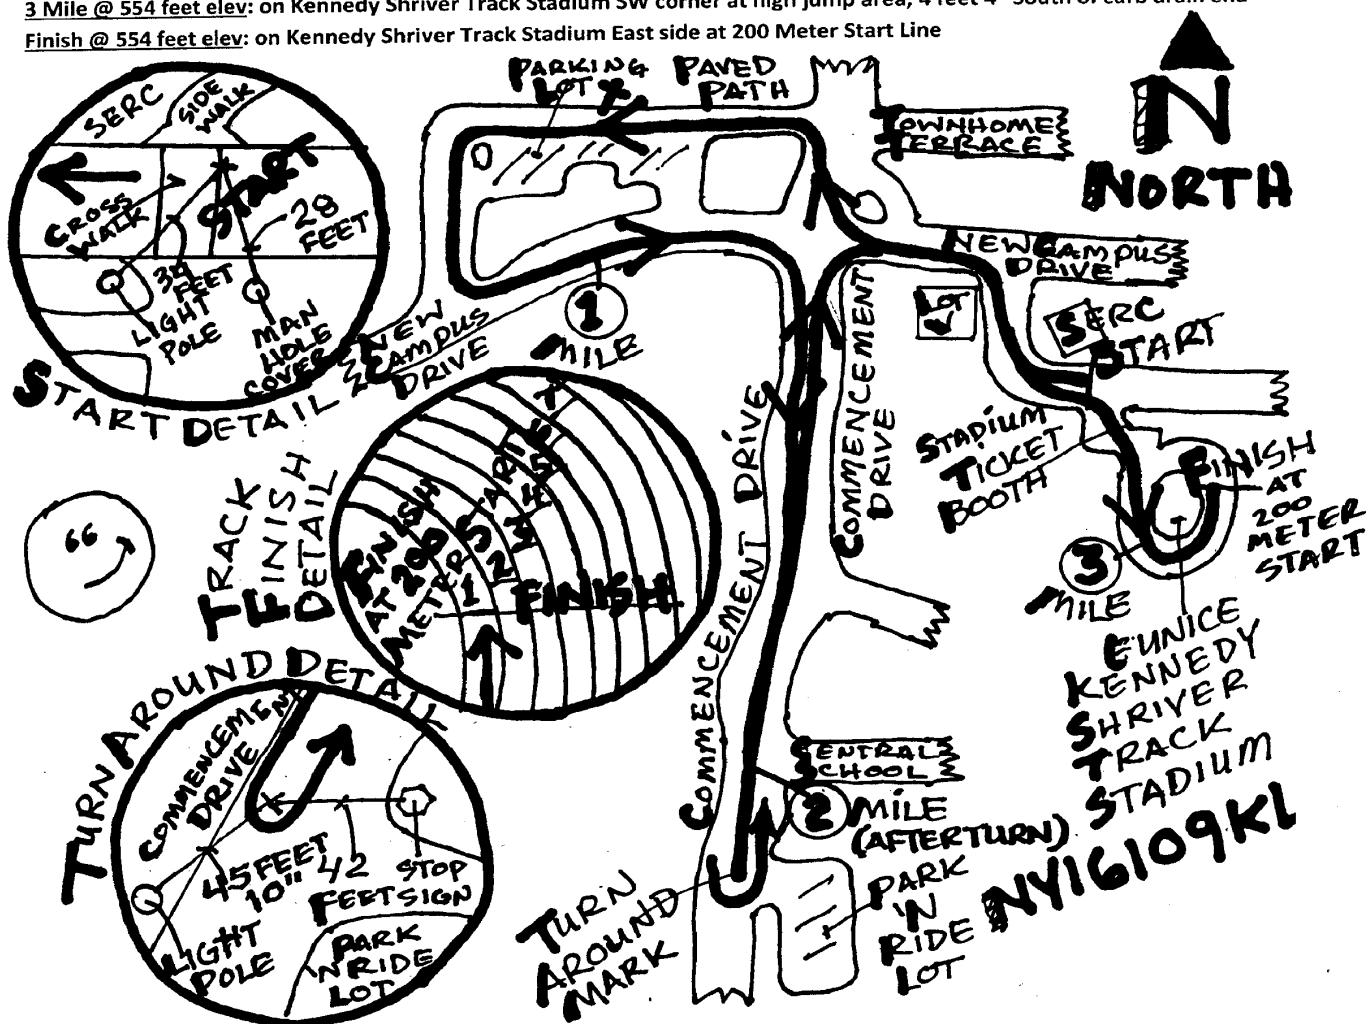 3 Mile @ 554 feet elev: on Kennedy Shriver Track Stadium SW corner at high jump area, 4 feet 4" South of curb drain end
Finish @ 554 feet elev: on Kennedy Shriver Track Stadium East side at 200 Meter Start Line
PARKING
LOT X
PAVED
PATH
TOWNHOME
TERRACE
N
NORTH
SERC
SIDE
WALK
START
CROSS
WALK
28
FEET
34
FEET
LIGHT
POLE
MAN
HOLE
COVER
START DETAIL
NEW
CAMPUS
DRIVE
1
MILE
NEW CAMPUS
DRIVE
LOT
V
SERC
START
COMMENCEMENT
DRIVE
COMMENCEMENT DRIVE
STADIUM
TICKET
BOOTH
FINISH
AT
200
METER
START
3
MILE
EUNICE
KENNEDY
SHRIVER
TRACK
STADIUM
TRACK
FINISH
DETAIL
FINISH
AT 200
METER START
1
2
3
4
5
6
7
FINISH
TURN AROUND DETAIL
COMMENCEMENT
DRIVE
45 FEET
10"
42
FEET
STOP
SIGN
LIGHT
POLE
PARK
'N RIDE
LOT
COMMENCEMENT DRIVE
CENTRAL
SCHOOL
2
MILE
(AFTER TURN)
TURN
AROUND
MARK
PARK
'N
RIDE
LOT
NY16109KL